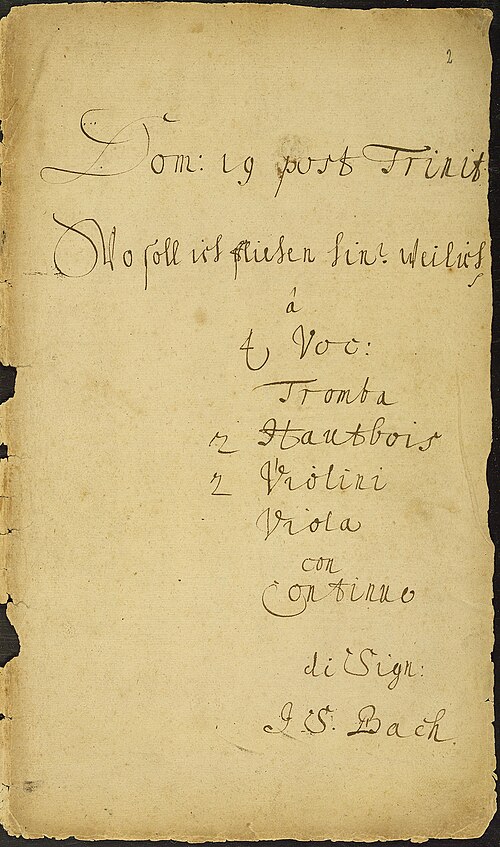 2
Dom: 19 post Trinit:
Wo soll ich fliehen hin? weil ich
â
4 Voc:
Tromba
2 Hautbois
2 Violini
Viola
con
Continuo
di Sign:
J. S. Bach.